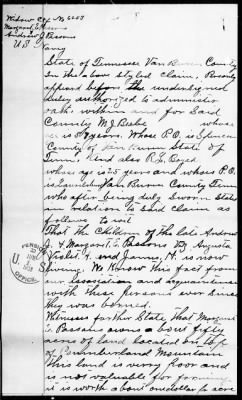 Widow Cef No 6203
Margaret E
Andrew J Parsons
U.S. Navy
State of Tennessee Van Buren County
In the above styled claim, Personly
appeard before the undersigned
duley authorized to administer
oath within and for Said
County M J Beebe whose
age is years Whose P.O. is Spencer
County of Van Buren State of
Tenn, And also R L Boyd
whose age is 25 years and whose P.O.
is Van Buren County Tenn
who after being duly Sworn State
in relation to said claim as
follows to wit
That the Children of the late Andrew
J. & Margaret E Parsons Augusta
Violet, and Jenny, H is now
living. We Know this fact from
our association and acquaintance
with these persons ever since
they was borned.
Witnesses further State, that Margaret
E. Parsons owns a bout fifty
acres of land located on top
of Cumberland Mountain
This land is very poor and
is not valuable for farming
it is worth a bout one dollar per acre
PENSION
U.S.
OFFICE